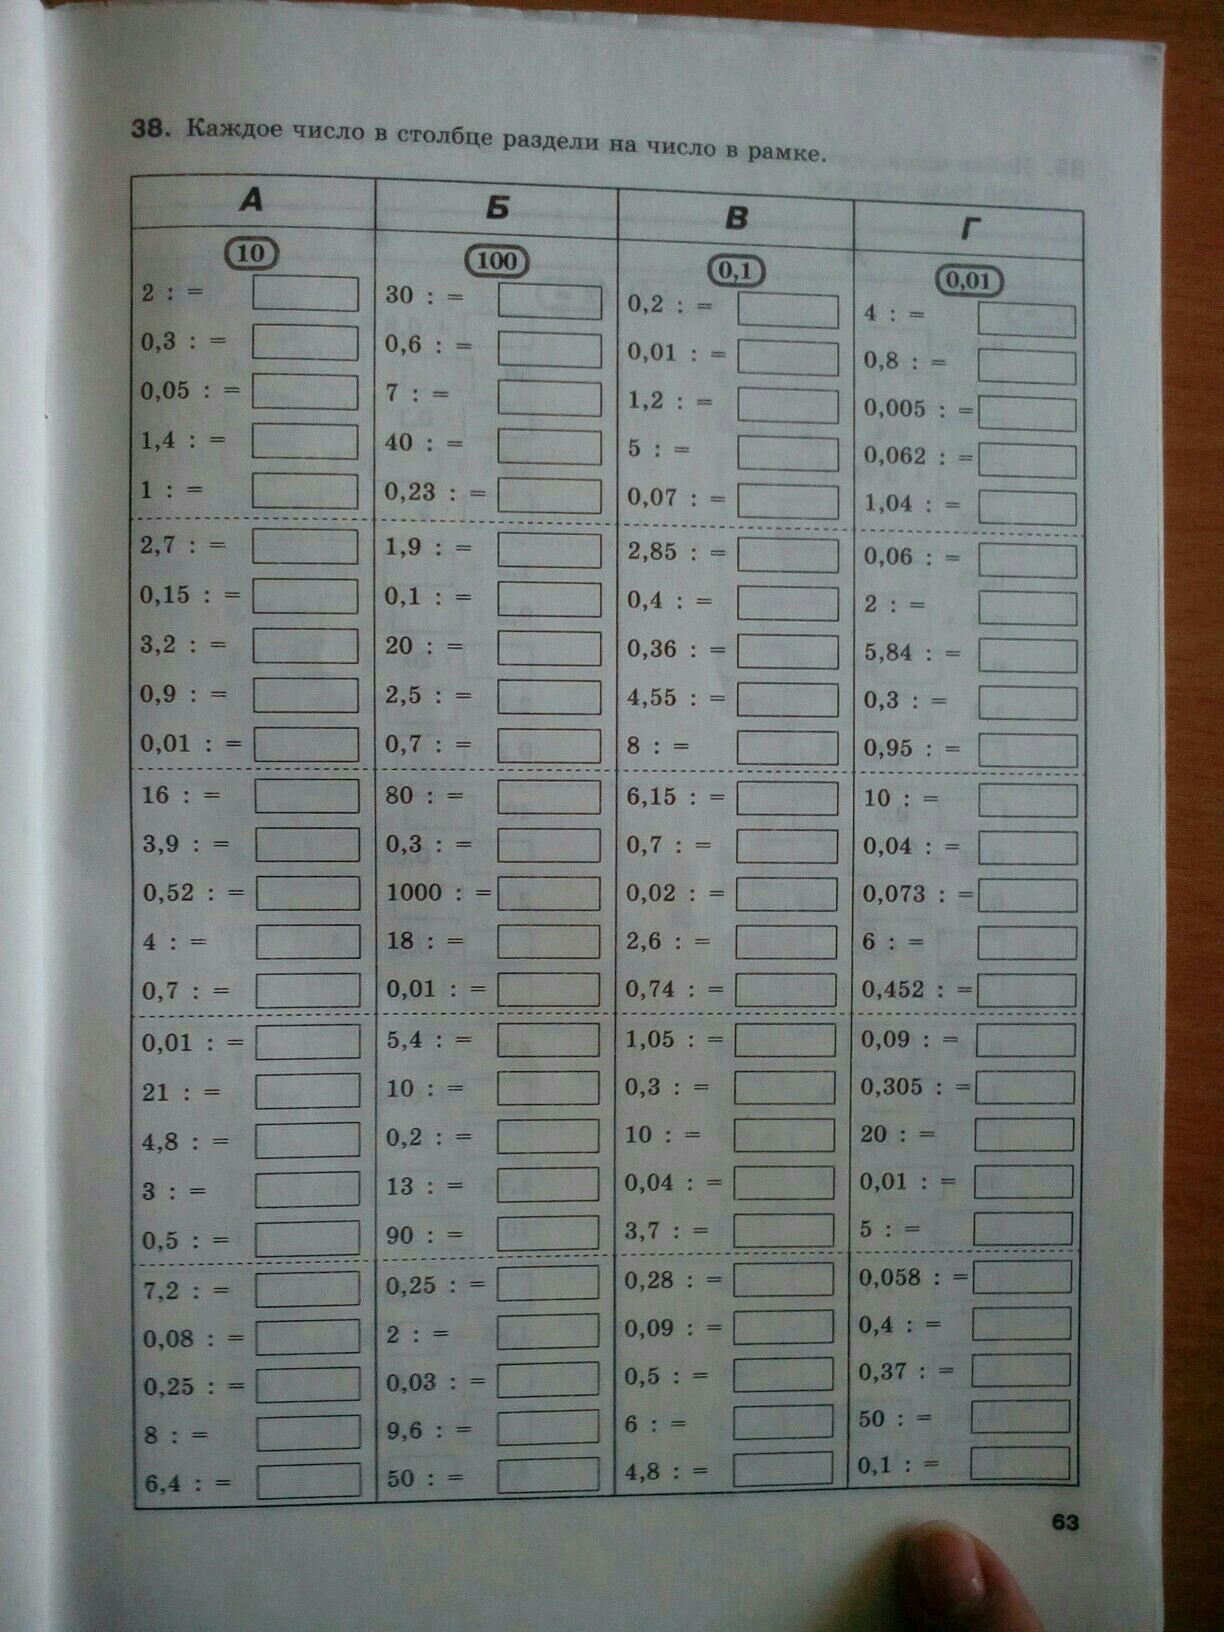 38. Каждое число в столбце раздели на число в рамке.
А Б В Г
10 100 0,1 0,01
2 : = 30 : = 0,2 : = 4 : =
0,3 : = 0,6 : = 0,01 : = 0,8 : =
0,05 : = 7 : = 1,2 : = 0,005 : =
1,4 : = 40 : = 5 : = 0,062 : =
1 : = 0,23 : = 0,07 : = 1,04 : =
2,7 : = 1,9 : = 2,85 : = 0,06 : =
0,15 : = 0,1 : = 0,4 : = 2 : =
3,2 : = 20 : = 0,36 : = 5,84 : =
0,9 : = 2,5 : = 4,55 : = 0,3 : =
0,01 : = 0,7 : = 8 : = 0,95 : =
16 : = 80 : = 6,15 : = 10 : =
3,9 : = 0,3 : = 0,7 : = 0,04 : =
0,52 : = 1000 : = 0,02 : = 0,073 : =
4 : = 18 : = 2,6 : = 6 : =
0,7 : = 0,01 : = 0,74 : = 0,452 : =
0,01 : = 5,4 : = 1,05 : = 0,09 : =
21 : = 10 : = 0,3 : = 0,305 : =
4,8 : = 0,2 : = 10 : = 20 : =
3 : = 13 : = 0,04 : = 0,01 : =
0,5 : = 90 : = 3,7 : = 5 : =
7,2 : = 0,25 : = 0,28 : = 0,058 : =
0,08 : = 2 : = 0,09 : = 0,4 : =
0,25 : = 0,03 : = 0,5 : = 0,37 : =
8 : = 9,6 : = 6 : = 50 : =
6,4 : = 50 : = 4,8 : = 0,1 : =
63